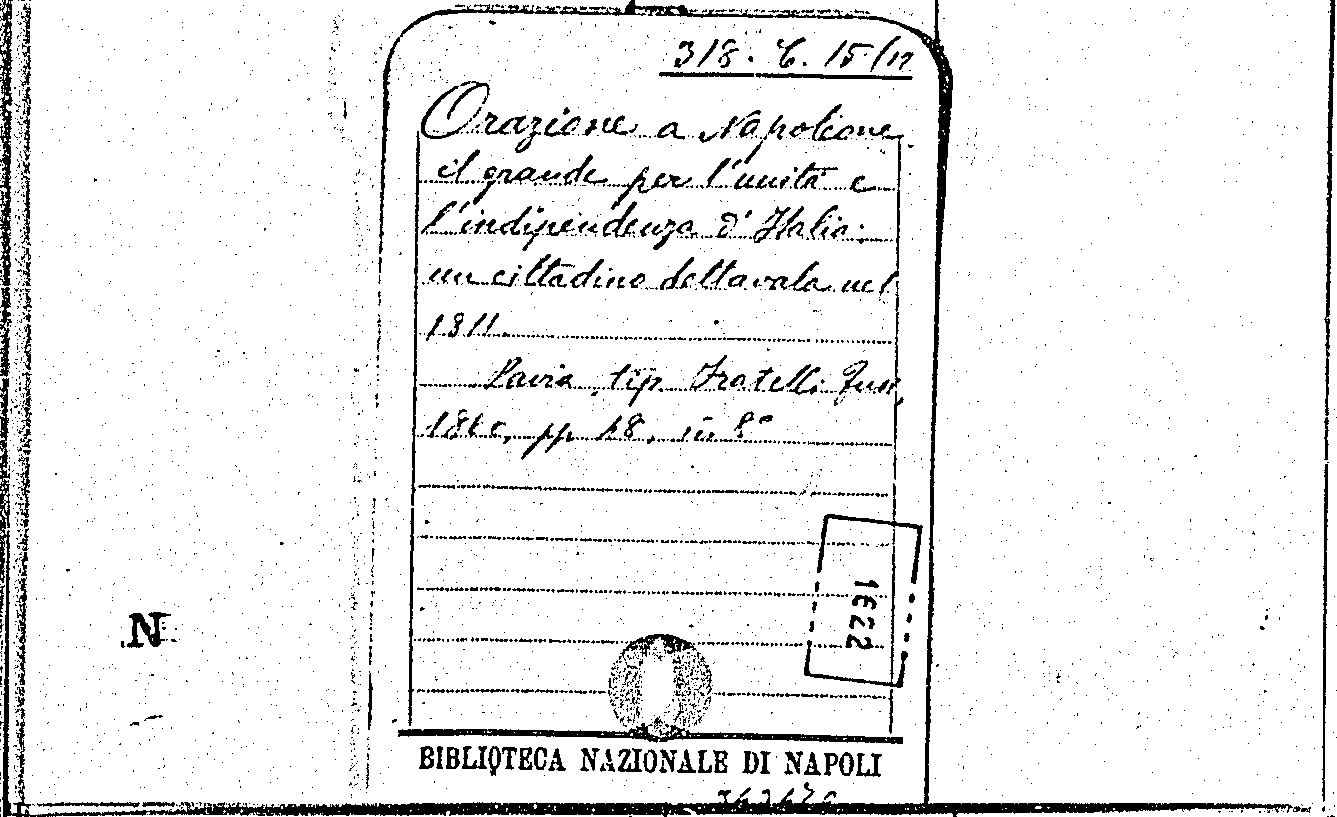 318. C. 15/12
Orazione a Napoleone
il grande per l'unità e
l'indipendenza d'Italia:
un cittadino dettavala nel
1811.
Pavia, tip. Fratelli Fusi,
1860, pp. 48, in 8°
1622
N
BIBLIOTECA NAZIONALE DI NAPOLI